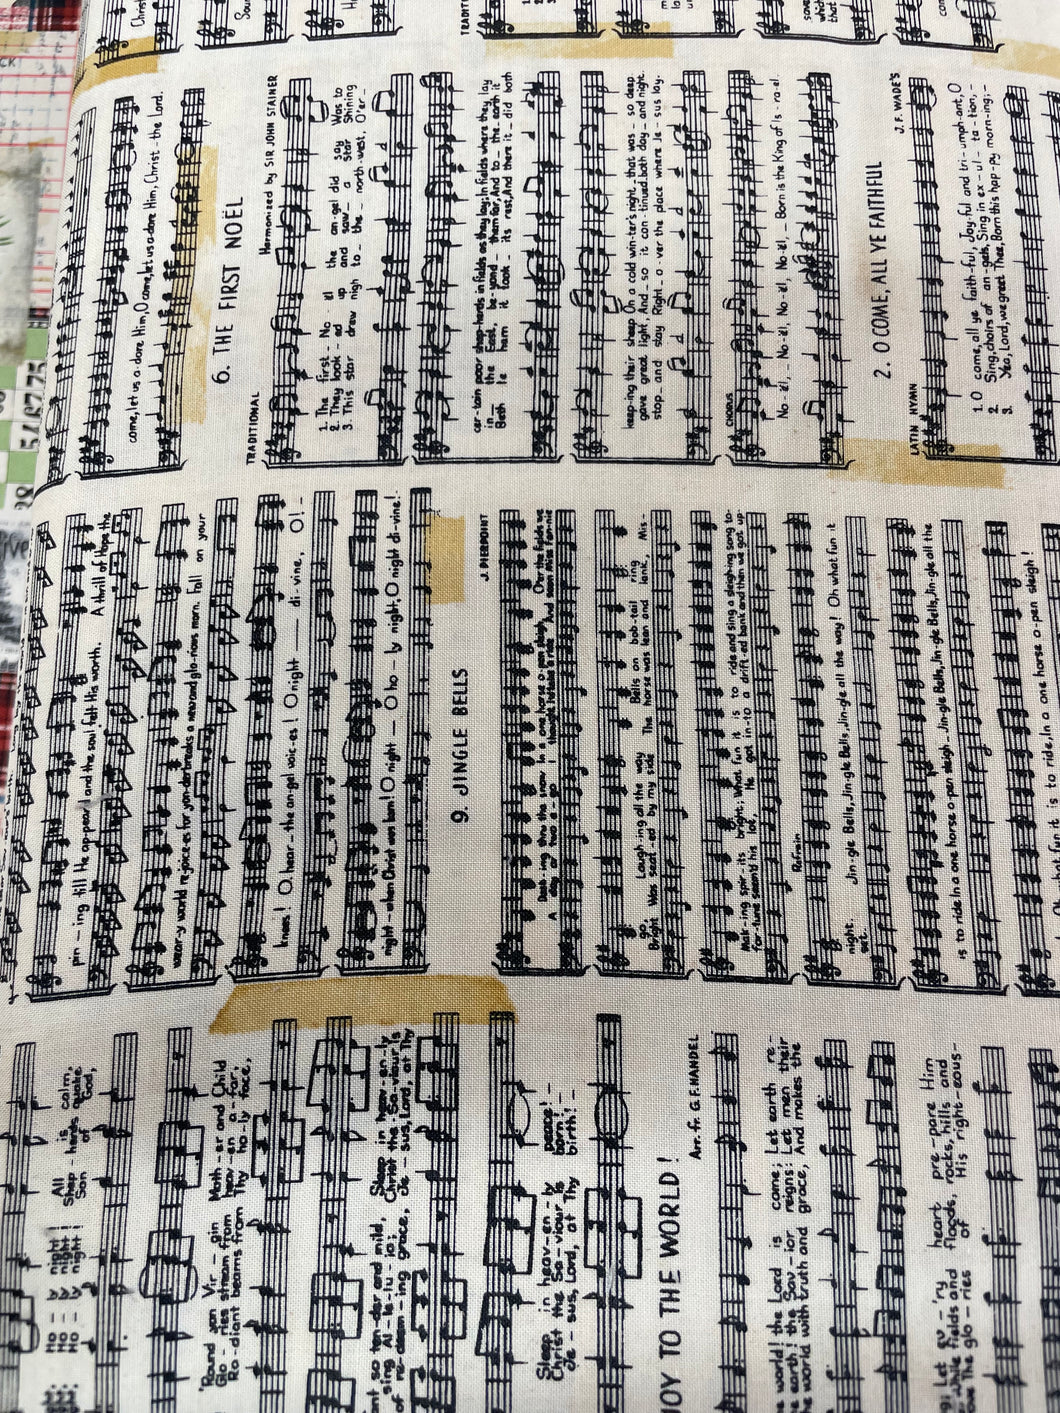 come, let us a-dore Him, O come, let us a-dore Him, Christ - the Lord.
6. THE FIRST NOËL
TRADITIONAL
Harmonized by SIR JOHN STAINER
1. The first No - el the an-gel did say Was to
2. They look - ed up and saw - a star Shining
3. This star drew nigh to - the - north-west, O'er -
cer-tain poor shep-herds in fields as they lay; In fields where they lay
in - the East, be-yond - them far, And to - the earth it
Beth - le - hem it took - its rest, And there it - did both
keep-ing their sheep On a cold win-ter's night, that was - so deep
gave great light, And - so it con-tinued both day - and night.
stop - and stay Right - o - ver the place where Je - sus lay.
CHORUS
No - el, - No - el, No - el, No - el, - Born is the King of Is - ra - el.
2. O COME, ALL YE FAITHFUL
LATIN HYMN
J. F. WADE'S
1. O come, all ye faith-ful, Joy-ful and tri - umph-ant, O
2. Sing, choirs of an - gels, Sing in ex - ul - ta - tion, -
3. Yea, Lord, we greet Thee, Born this hap-py morn-ing; -
pin - ing till He ap-pear'd and the soul felt His worth. A thrill of hope the
wear-y world re-joic-es for yon-der breaks a new and glo-rious morn. Fall on your
knees! O hear - the an-gel voic-es! O night - di - vine, O! -
night - when Christ was born! O night - O ho - ly night, O night di-vine!
9. JINGLE BELLS
J. PIERPOINT
Dash-ing thru the snow In a one horse o-pen sleigh, O'er the fields we
A day or two a - go I thought I'd take a ride And soon Miss Fan-nie
go, Laugh-ing all the way Bells on bob-tail ring
Bright Was seat-ed by my side The horse was lean and lank, Mis -
Mak-ing spir-its bright; What fun it is to ride and sing a sleigh-ing song to-
for-tune seem'd his lot, He got in-to a drift-ed bank and then we got up-
Refrain
night. Jin-gle Bells, Jin-gle Bells, Jin-gle all the way! Oh what fun it
set.
is to ride In a one horse o-pen sleigh - Jin-gle Bells, Jin-gle Bells, Jin-gle all the
fun it is to ride, In a one horse o-pen sleigh!
Ho - ly night! All is calm,
Ho - ly night! Shep - herds quake
Ho - ly night! Son of God,
'Round yon Vir - gin Moth - er and Child
Glo - ries stream from heav - en a - far,
Ra - diant beams from Thy ho - ly face,
ant so ten-der and mild, Sleep in heav-en-ly
sing Al - le - lu - ia; Christ the Sa-viour is
of re-deem - ing grace, Je - sus, Lord, at Thy
Sleep in heav-en - ly peace! -
Christ the Sa-viour is born! -
Je - sus, Lord, at Thy birth! -
JOY TO THE WORLD!
Arr. fr. G. F. HANDEL
world! the Lord is come; Let earth re -
earth! the Sav - ior reigns; Let men their
the world with truth and grace, And makes the
Let ev - 'ry heart pre - pare Him
while fields and floods, rocks, hills and
the glo - ries of His right - eous -